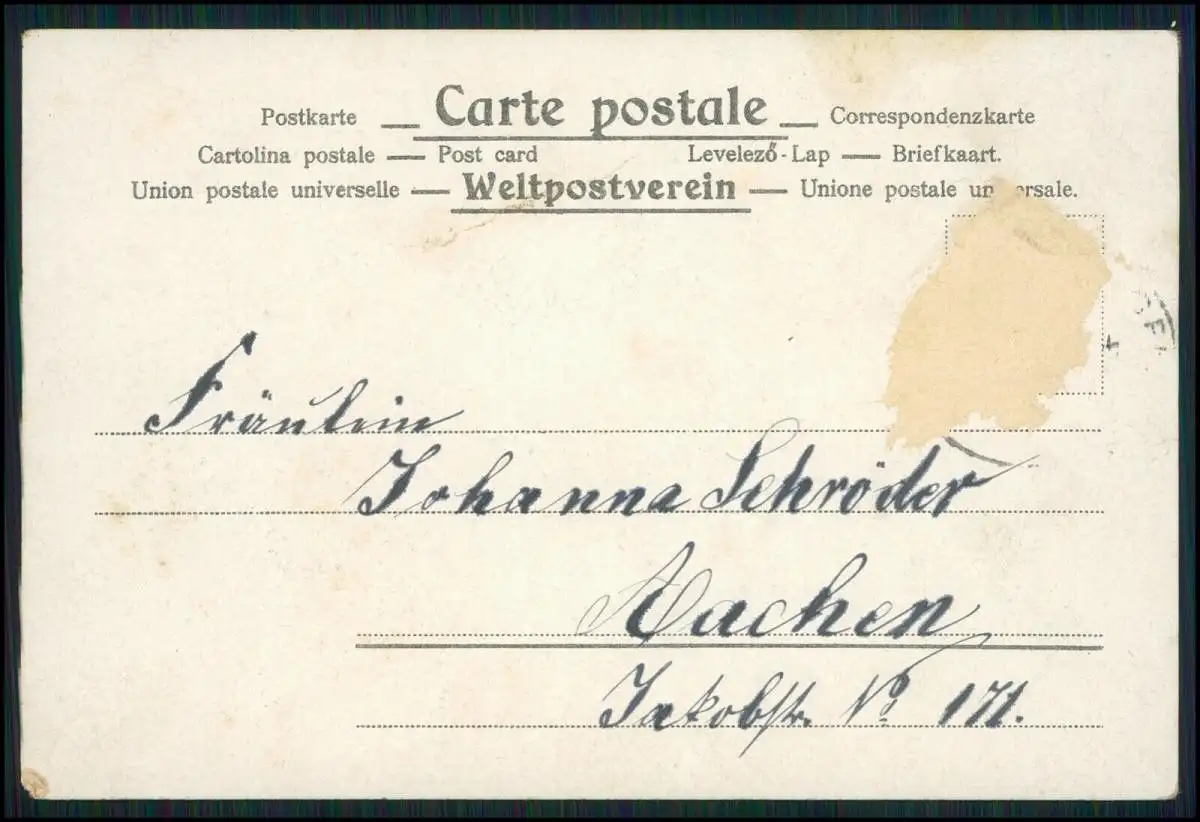 Carte postale
Postkarte — Correspondenzkarte
Cartolina postale — Post card Levelező-Lap — Briefkaart.
Union postale universelle — Weltpostverein — Unione postale un ersale.
Fräulein
Johanna Schröder
Aachen
Jakobstr. No 171.